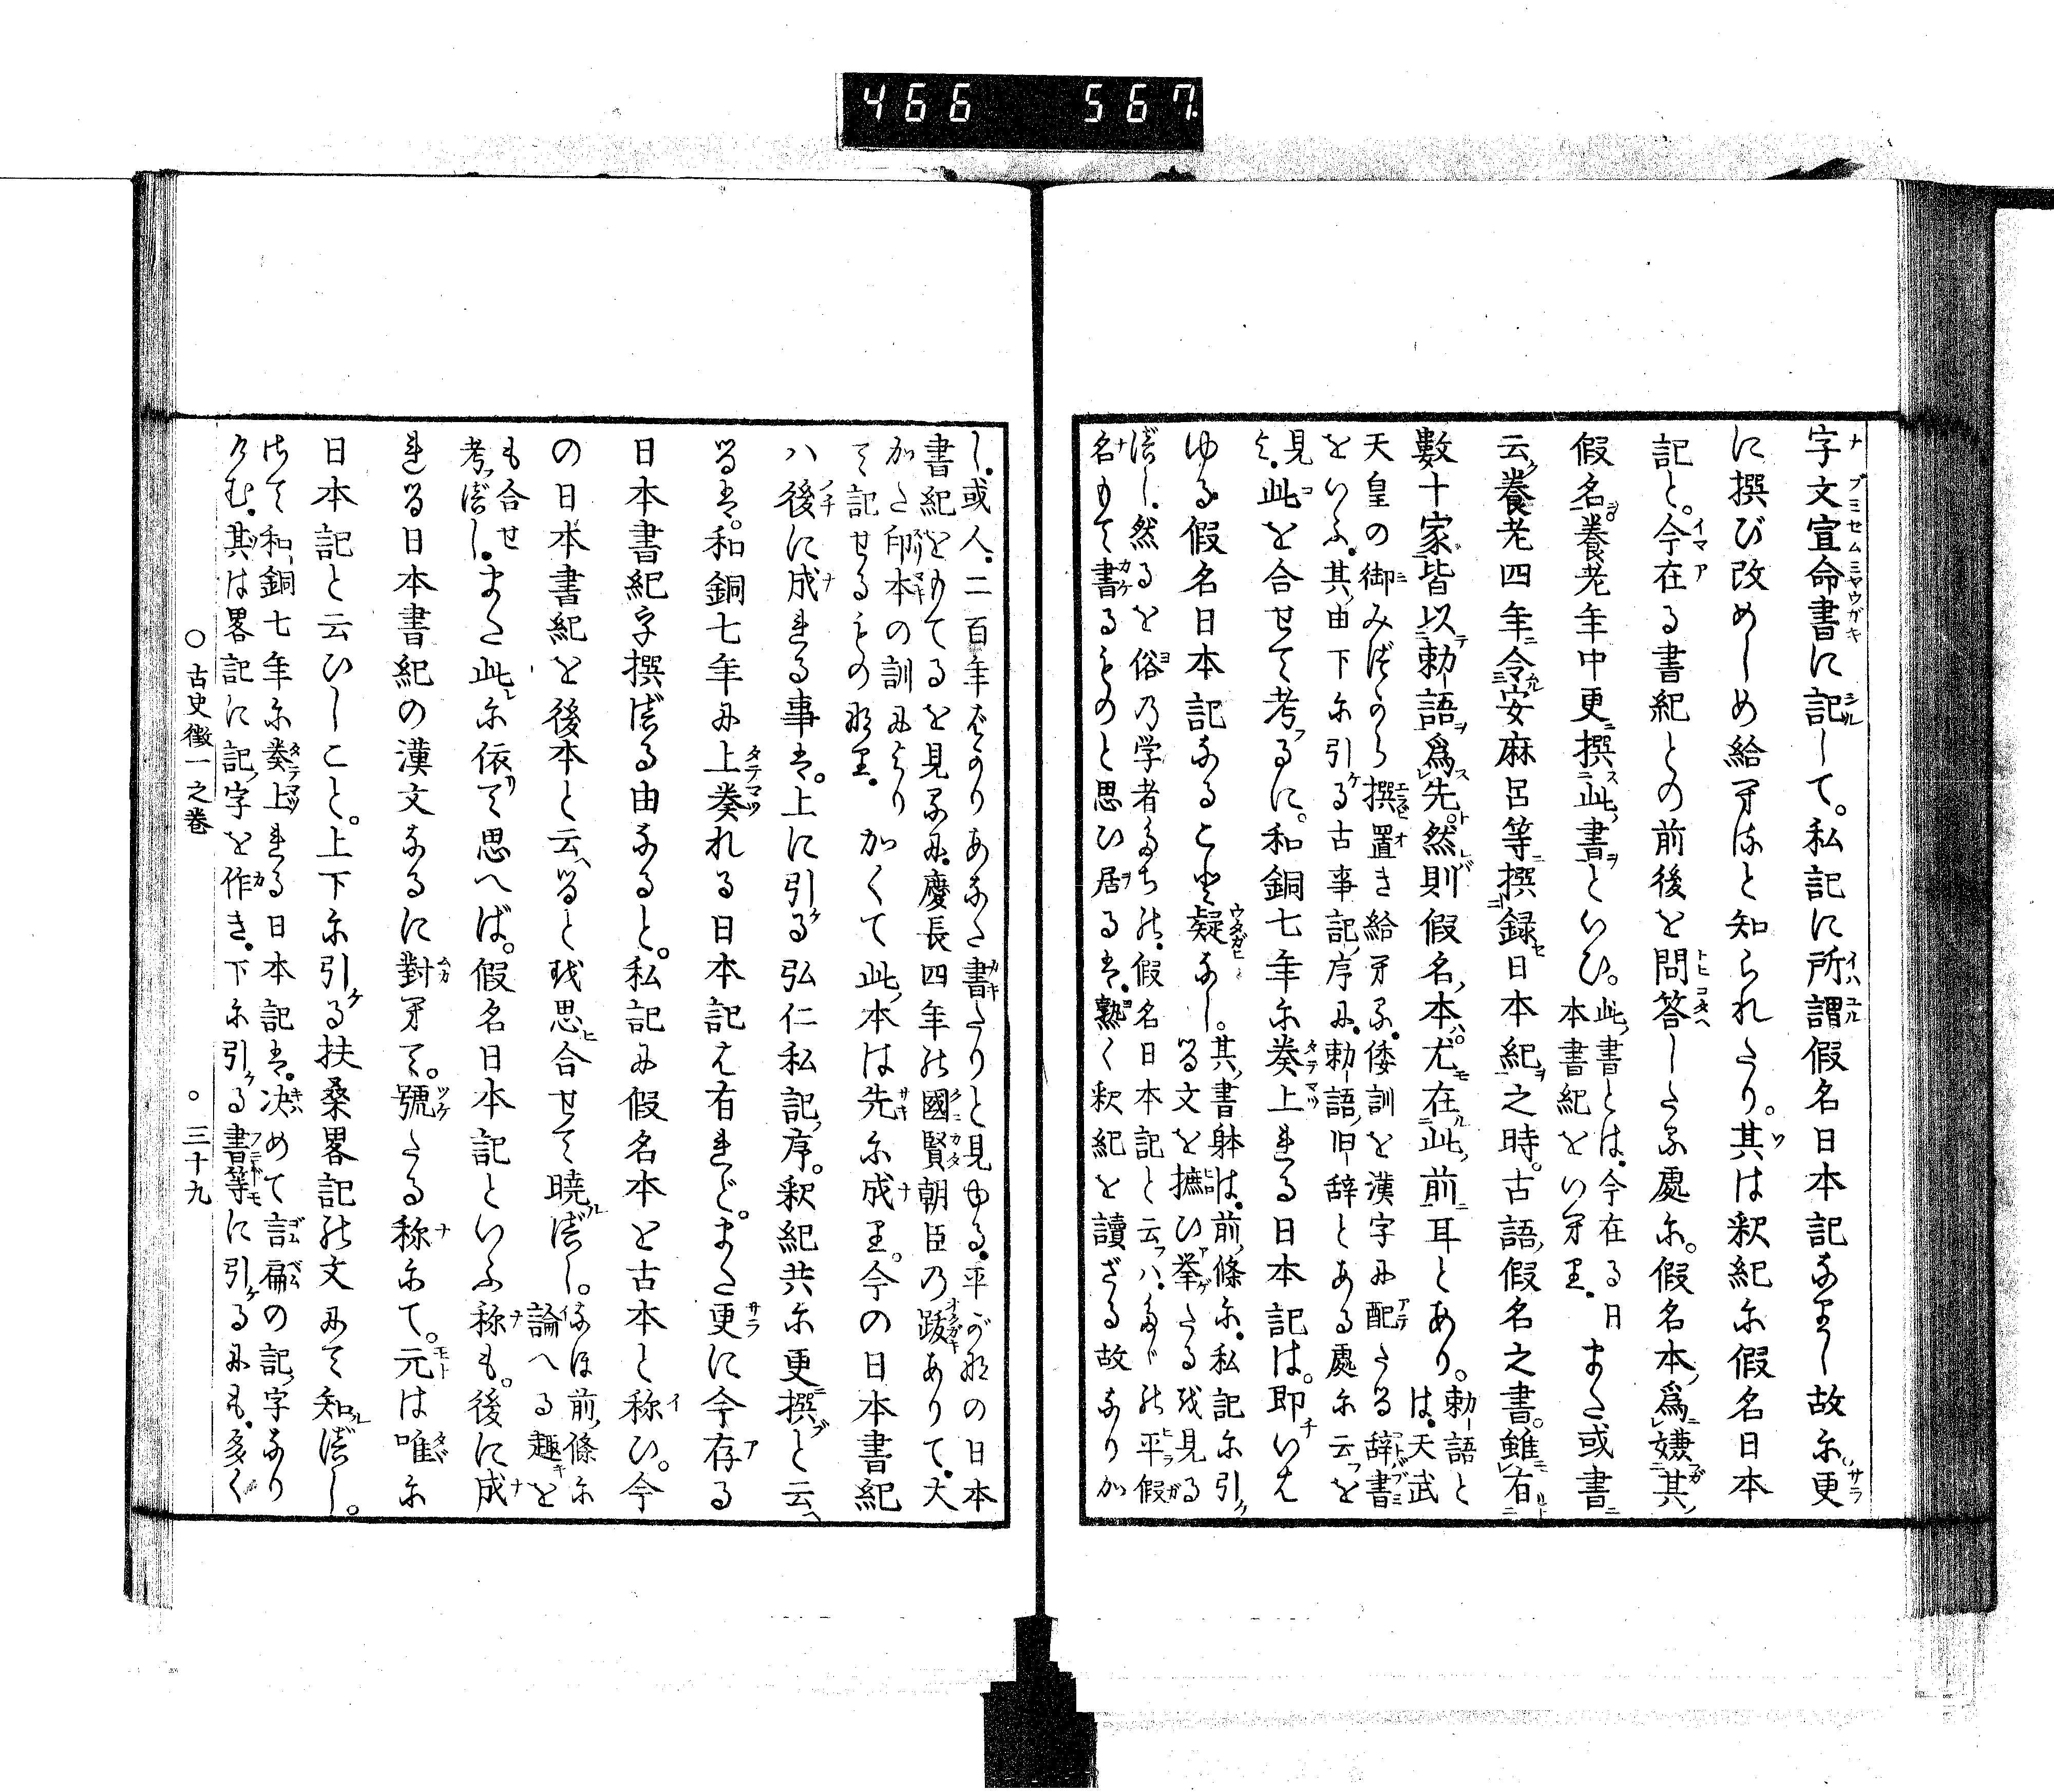 466 567
字文宣命書に記して。私記に所謂假名日本記なりし故に。更
に撰び改めしめ給へりと知られたり。其は釈紀に假名日本
記と。今在る書紀との前後を問答したる處に。假名本爲嫌其
假名養老年中更撰此書といひ。
此書とは。今在る日
本書紀をいへり。
また或書
云養老四年令安麻呂等撰録日本紀之時。古語假名之書。雖有
數十家皆以勅語爲先。然則假名本尤在此前耳とあり。
勅語と
は。天武
天皇の御みづから撰置き給へる。倭訓を漢字に配たる辞書
をいふ。其由下に引る古事記序に。勅語旧辞とある處に云を
見よ。
此を合せて考るに。和銅七年に奏上れる日本記は。即いは
ゆる假名日本記なること疑なし。
其書躰は。前條に。私記に引
る文を摭ひ挙たるを見る
べし。然るを俗の学者たち。假名日本記と云ハ。たゞの平假
名もて書るものと思ひ居るは。熟く釈紀を讀ざる故なりか
し。或人。二百年ばかりあなた書たりと見ゆる。平がなの日本
書紀をもてるを見るに。慶長四年の國賢朝臣の跋ありて。大
かた印本の訓により
て記せるものなり。
かくて此本は先に成り。今の日本書紀
ハ後に成れる事は。上に引る弘仁私記序。釈紀共に更撰と云
るは。和銅七年に上奏れる日本記は有れど。また更に今存る
日本書紀字撰べる由なると。私記に假名本を古本と称ひ。今
の日本書紀を後本と云るとを思合せて曉べし。
なほ前條に
論へる趣を
も合せ
考べし。
また此に依て思へば。假名日本記といふ称も。後に成
れる日本書紀の漢文なるに對へて。號たる称にて。元は唯に
日本記と云ひしこと。上下に引る扶桑畧記の文にて知べし。
さて和銅七年に奏上れる日本記は。决めて言扁の記字なり
けむ。其は畧記に記字を作き。下に引る書等に引るにも。多く
○古史徴一之巻 ○三十九